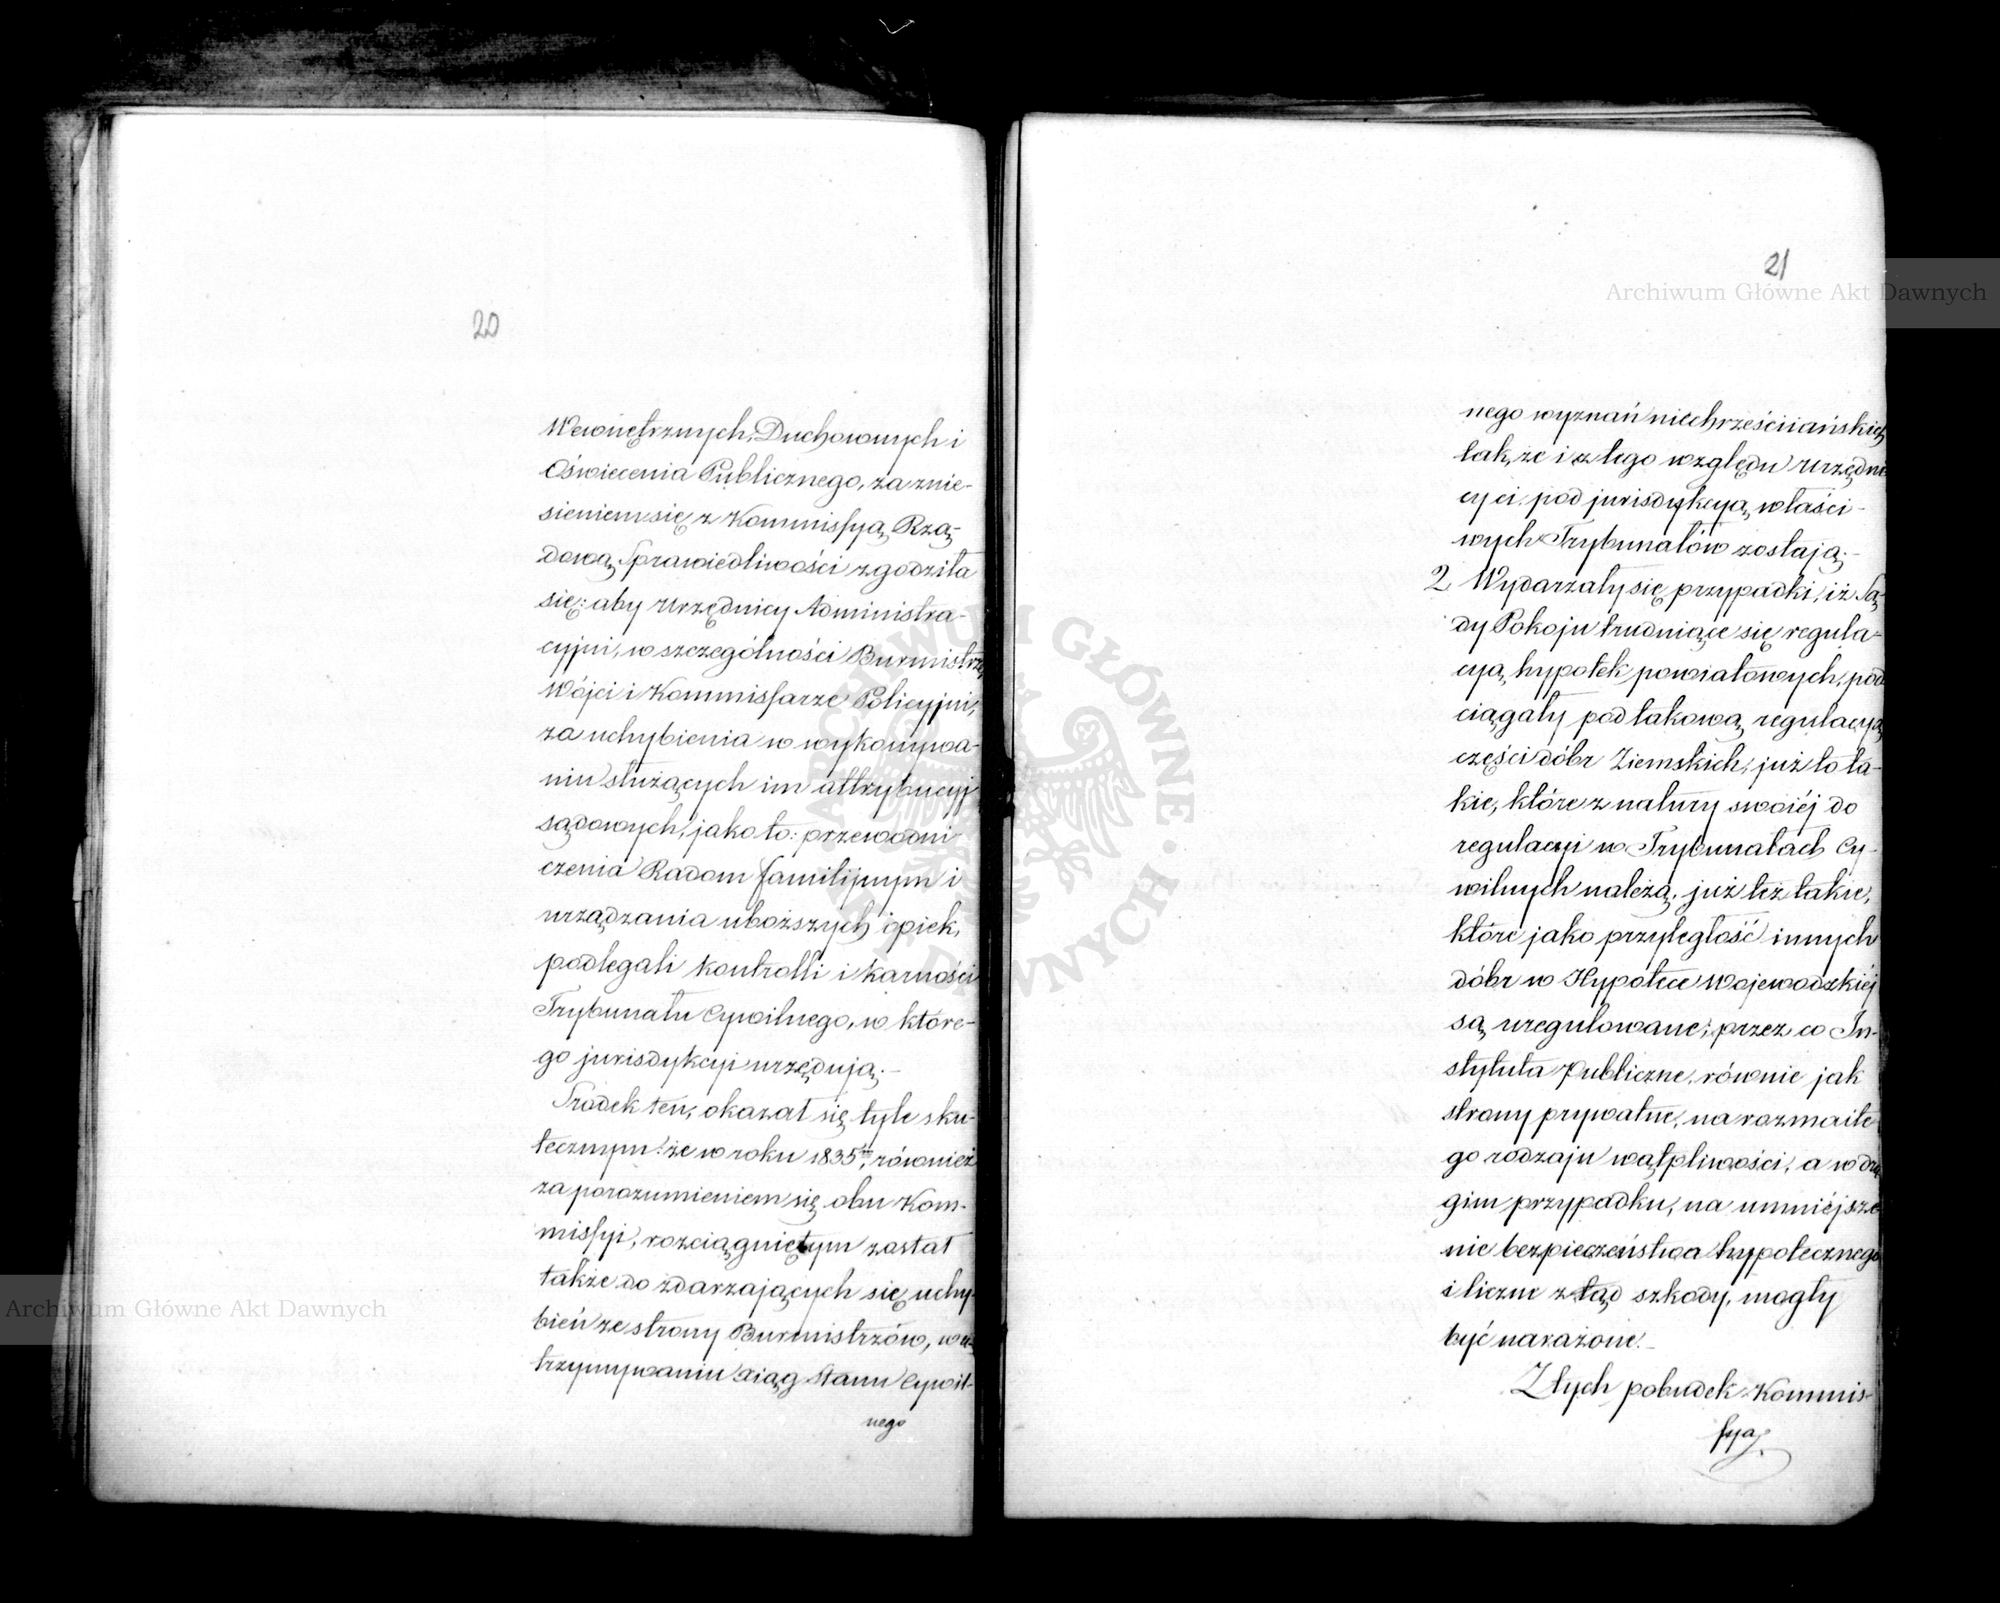 20
Wewnętrznych, Duchownych i
Oświecenia Publicznego, za znie-
sieniem się z Kommissyą Rzą-
dową Sprawiedliwości zgodziła
się: aby Urzędnicy Administra-
cyjni, w szczególności Burmistrze
Wójci i Kommissarze Policyjni,
za uchybienia w wykonywa-
niu służących im attrybucyj
sądowych, jako to: przewodni
czenia Radom familijnym i
urządzania uboższych opiek,
podlegali kontrolli i karności
Trybunału Cywilnego, w które-
go jurisdykcyi urzędują.-
Środek ten, okazał się tyle sku-
tecznym: że w roku 1835tm, również
za porozumieniem się obu Kom-
missyi, rozciągniętym został
także do zdarzających się uchy-
bień ze strony Burmistrzów, w u-
trzymywaniu xiąg Stanu Cywil-
nego
21
nego wyznań niechrześciiańskich
tak, że i z tego względu Urzędni
cy ci, pod jurisdykcyą właści-
wych Trybunałów zostają.-
2 Wydarzały się przypadki, iż Są-
dy Pokoju trudniące się regula-
cyą hypotek powiatowych, pod
ciągały pod takową regulacyą
części dóbr Ziemskich, już to ta-
kie, które z natury swoiéj do
regulacyi w Trybunałach Cy-
wilnych należą, już też takie,
które jako przyległość innych
dóbr w Hypotece Wojewodzkiéj
są uregulowane; przez co In-
stytuta Publiczne, równie jak
strony prywatne, na rozmaite
go rodzaju wątpliwości, a w dru
gim przypadku, na umniéjsze
nie bezpieczeństwa hypotecznego
i liczne ztąd szkody, mogły
być narażone.-
Z tych pobudek Kommis-
sya
Archiwum Główne Akt Dawnych
Archiwum Główne Akt Dawnych
ARCHIWUM GŁÓWNE AKT DAWNYCH